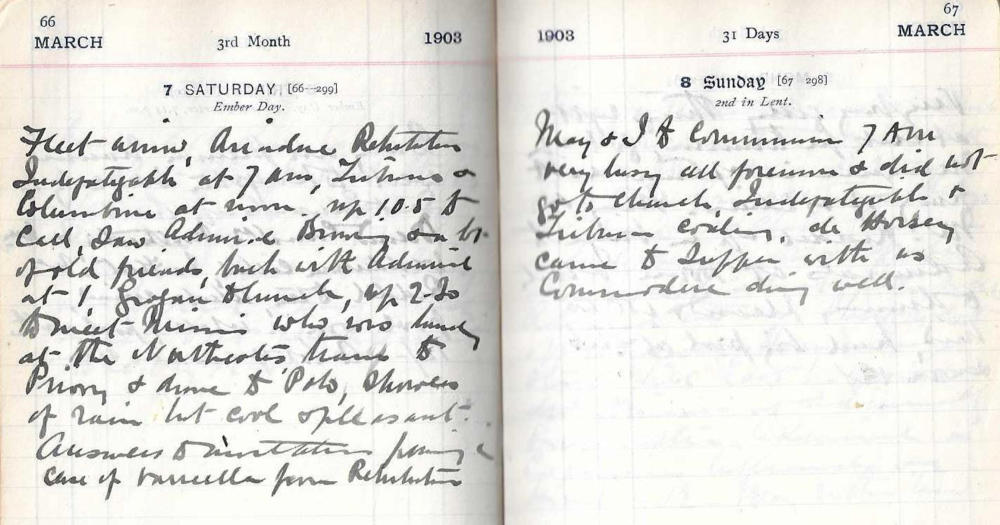 66
MARCH 3rd Month 1903
7 SATURDAY [66—299]
Ember Day.
Fleet arrive, Ariadne Retribution
Indefatigable at 7 am, Tribune &
Columbine at noon. up 10.5 to
Call, Saw Admiral &
of old friends, back with Admiral
at 1 to lunch, up 2-30
to meet who was
at the Northcotes tram to
Priory & drove to Polo, Showers
of rain but cool & pleasant.
Answers to invitations
case of varicella from Retribution
67
1903 31 Days MARCH
8 Sunday [67 298]
2nd in Lent.
May & I to Communion 7 Am
very busy all forenoon & did not
go to Church, Indefatigable &
Tribune coaling, de Horsey
came to Supper with us
Commodore doing well.